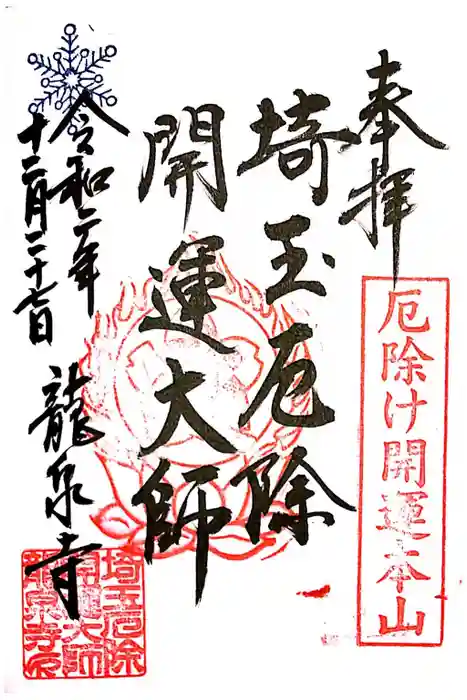 奉拝
厄除け開運本山
埼玉厄除
開運大師
令和二年
十二月二十七日
龍泉寺
埼玉厄除
開運大師
龍泉寺印